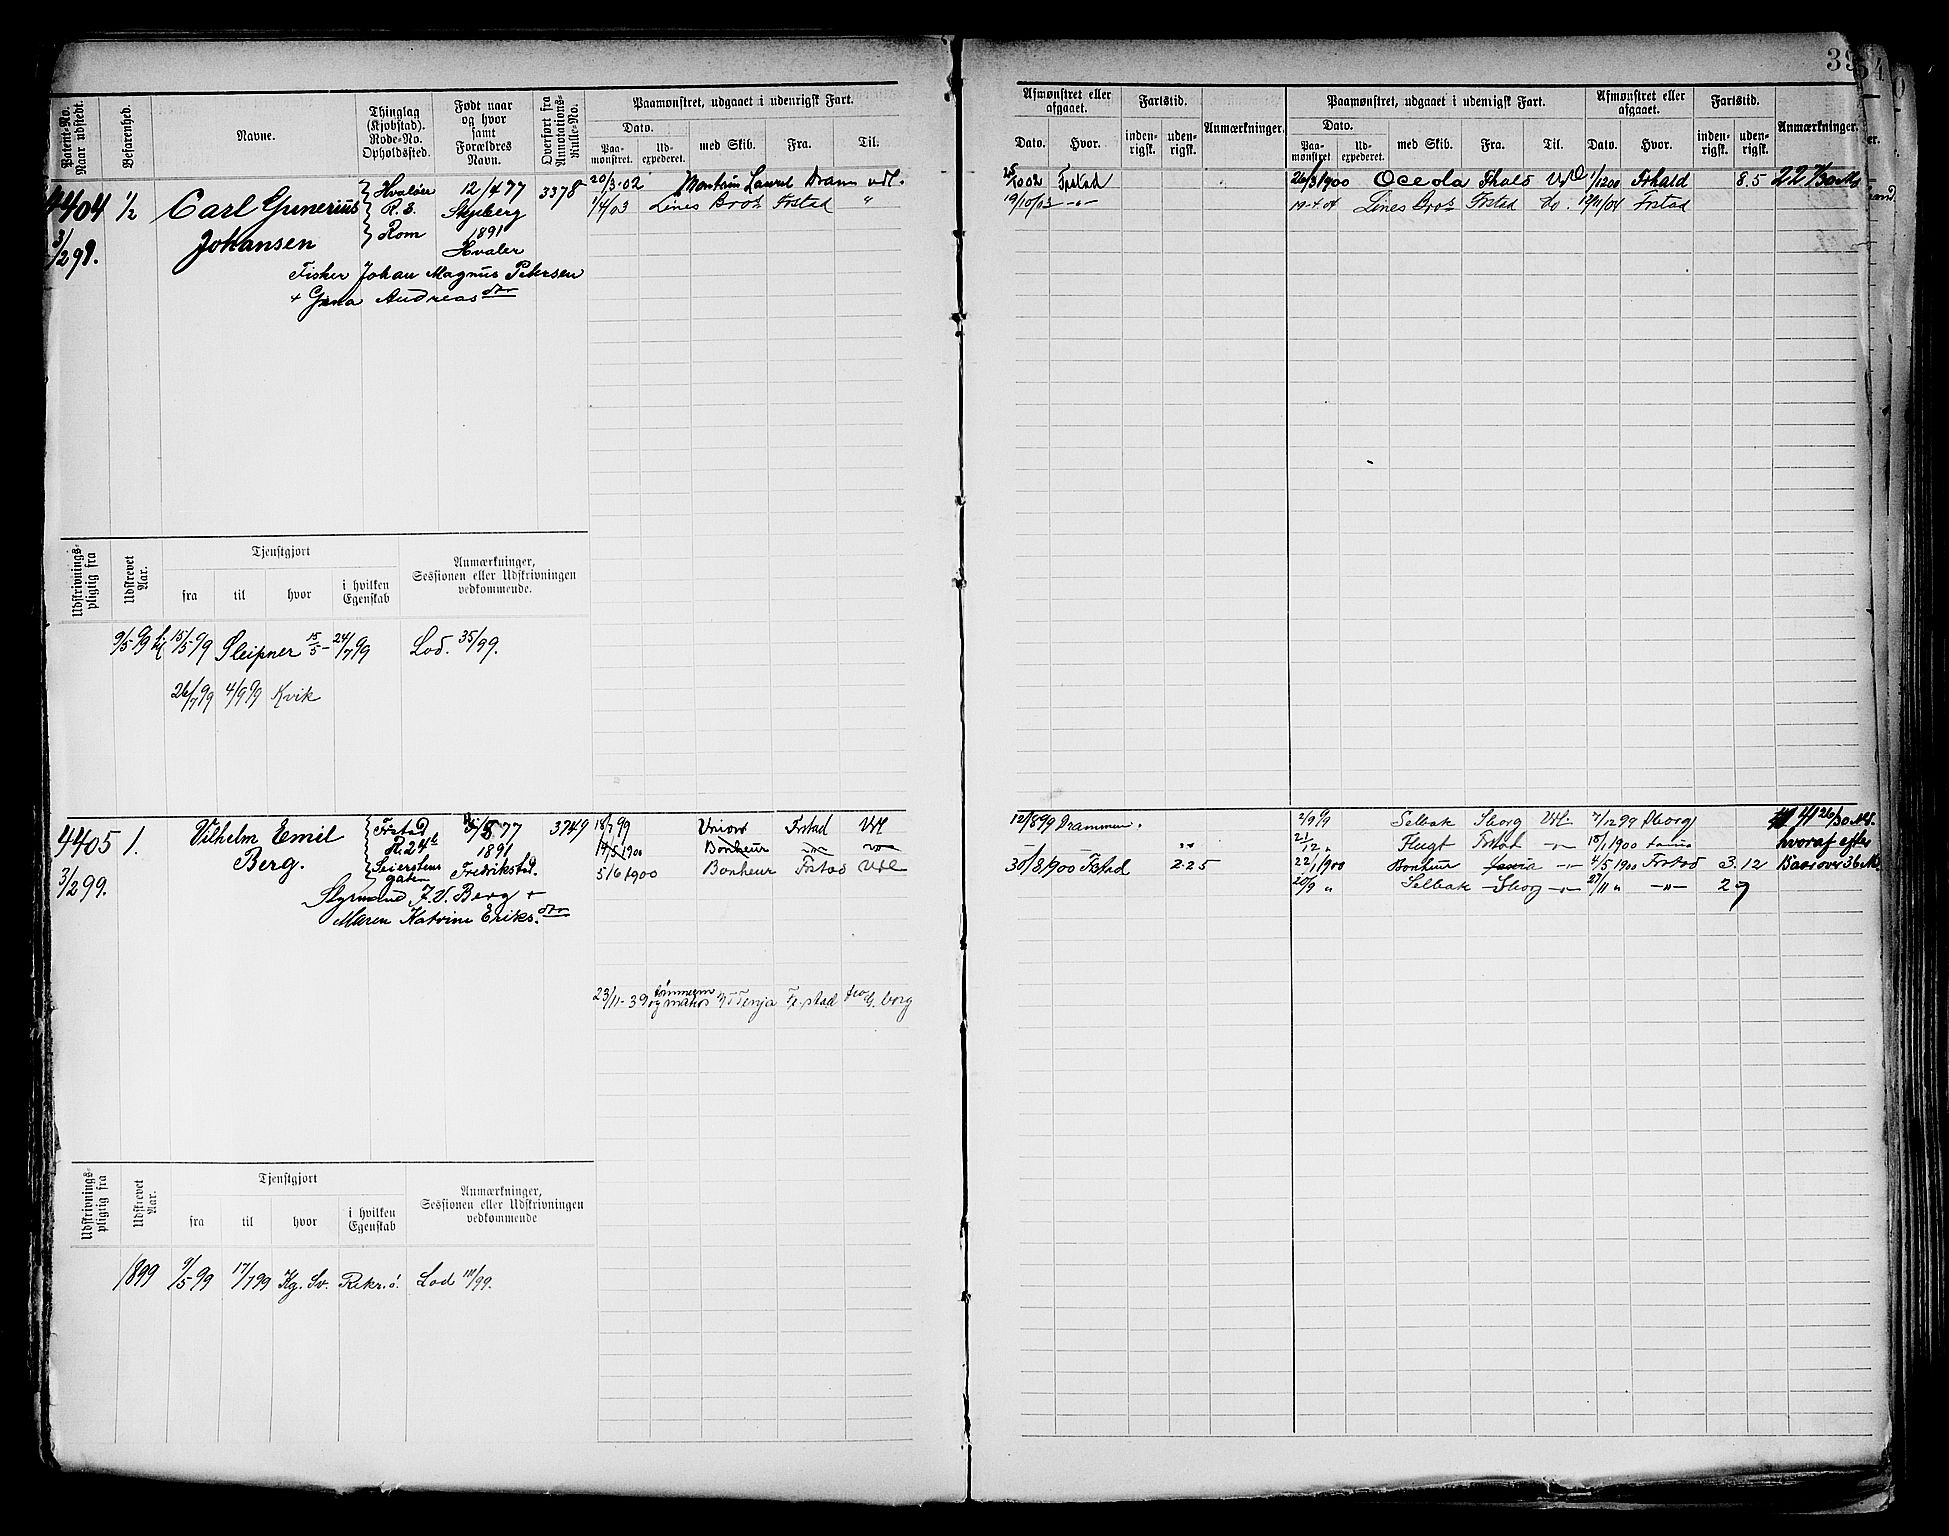 39
Patent-No. Naar udstedt.
Befarenhed.
Navne.
Thinglag (Kjøbstad). Rode-No. Opholdssted.
Født naar og hvor samt Forældres Navn.
Overført fra Annotations-Rulle-No.
Paamønstret, udgaaet i udenrigsk Fart.
Dato.
Paa-mønstret. Ud-expederet. med Skib. Fra. Til.
Afmønstret eller afgaaet. Fartstid. Anmærkninger.
Dato. Hvor. inden-rigsk. uden-rigsk.
Paamønstret, udgaaet i udenrigsk Fart. Afmønstret eller afgaaet. Fartstid. Anmærkninger.
Dato.
Paa-mønstret. Ud-expederet. med Skib. Fra. Til. Dato. Hvor. inden-rigsk. uden-rigsk.
4404 1/2 Carl Gunerius Hvaløer 12/4 77 3378 20/3-02 Laurel Dram udl.
3/2 99. Johansen R. 3. Skjeberg 1/4/03 Lines Bros Frstad "
Rom 1891
Hvaler
Fisker Johan Magnus Petersen
+ Gina Andreasdtr
Frstad 26/3 1900 Oceola Fhald Udl 1/12 00 Frhald 8.5
19/10/03 -"- 19-4-04 Lines Bros Frstad do. Frstad
Udskrivnings-pligtig fra
Udskrevet Aar.
Tjenstgjort
fra til hvor i hvilken Egenskab
Anmærkninger, Sessionen eller Udskrivningen vedkommende.
9/5-99 15/5 99 Sleipner 15/5- 24/7 99 Lod. 35/99.
26/7 99 4/9 99 Kvik
4405 1. Vilhelm Emil Frstad 5/8 77 3749 18/7 99 Union Frstad Udl
3/2 99. Berg. R. 24 1891 14/5 1900 Bonheur
Seierstens gaten Fredrikstad. 5/6 1900 Bonheur Frstad Udl
Styrmand J. V. Berg +
Maren Katrine Eriks.dtr
23/11-39 og matros Tenja Fr.stad G.borg
12/8 99 Drammen. 2/9 99 Selbak Sborg Udl. 7/12 99 Sborg 26/30 Md.
21/12 " Flugt Frstad -"- 15/1 1900 hvoraf efter
30/8 1900 Frstad 2 25 22/1 1900 Bonheur -"- 4/5 1900 Frstad 3. 12 Baar over 36 Md.
20/9 " Selbak Sborg -"- 27/11 " -"- 2 7
Udskrivnings-pligtig fra
Udskrevet Aar.
Tjenstgjort
fra til hvor i hvilken Egenskab
Anmærkninger, Sessionen eller Udskrivningen vedkommende
1899 9/5 99 17/7 99 Kg. Sv. Rekr. ö. Lod 111/99.